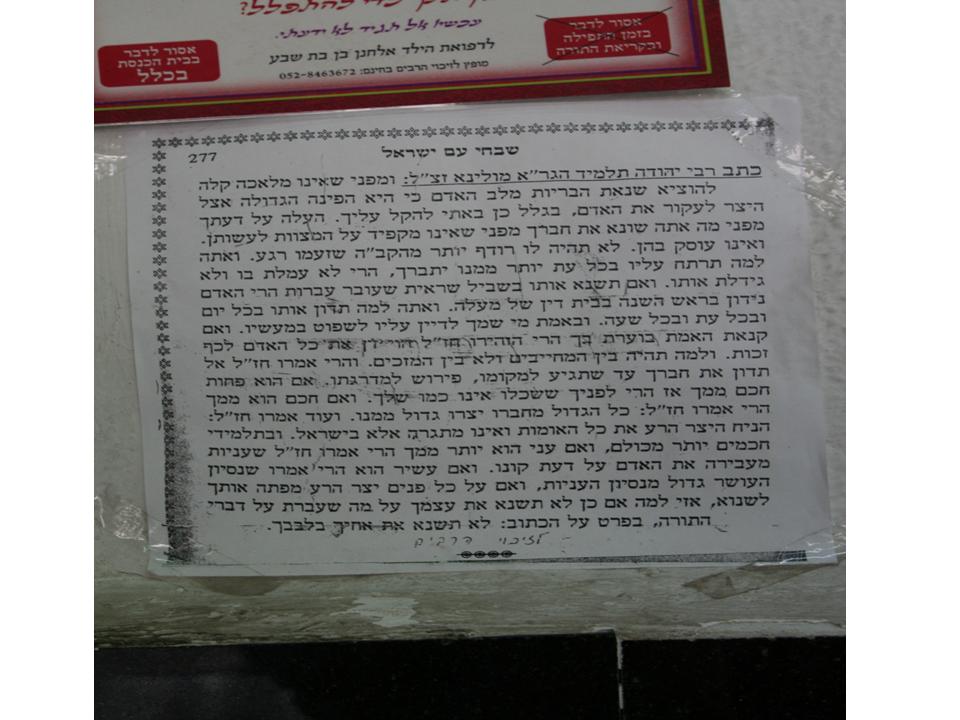 להתפלל?
עכשיו אל תגיד לא ידעתי.
לרפואת הילד אלחנן בן בת שבע
מופץ לזיכוי הרבים בחינם: 052-8463672
אסור לדבר
בבית הכנסת
בכלל
אסור לדבר
בזמן התפילה
ובקריאת התורה
277
שבחי עם ישראל
כתב רבי יהודה תלמיד הגר"א מולינא זצ"ל: ומפני שאינו מלאכה קלה
להוציא שנאת הבריות מלב האדם כי היא הפינה הגדולה אצל
היצר לעקור את האדם, בגלל כן באתי להקל עליך. העלה על דעתך
מפני מה אתה שונא את חברך מפני שאינו מקפיד על המצוות לעשותן.
ואינו עוסק בהן. לא תהיה לו רודף יותר מהקב"ה שזעמו רגע. ואתה
למה תרתח עליו בכל עת יותר ממנו יתברך, הרי לא עמלת בו ולא
גידלת אותו. ואם תשנא אותו בשביל שראית שעובר עברות הרי האדם
נידון בראש השנה בבית דין של מעלה. ואתה למה תדון אותו בכל יום
ובכל עת ובכל שעה. ובאמת מי שמך לדיין עליו לשפוט במעשיו. ואם
קנאת האמת בוערת בך הרי הזהירו חז"ל הוי דן את כל האדם לכף
זכות. ולמה תהיה בין המחייבים ולא בין המזכים. והרי אמרו חז"ל אל
תדון את חברך עד שתגיע למקומו, פירוש למדרגתו. אם הוא פחות
חכם ממך אז הרי לפניך ששכלו אינו כמו שלך. ואם חכם הוא ממך
הרי אמרו חז"ל: כל הגדול מחברו יצרו גדול ממנו. ועוד אמרו חז"ל:
הניח היצר הרע את כל האומות ואינו מתגרה אלא בישראל. ובתלמידי
חכמים יותר מכולם, ואם עני הוא יותר ממך הרי אמרו חז"ל שעניות
מעבירה את האדם על דעת קונו. ואם עשיר הוא הרי אמרו שנסיון
העושר גדול מנסיון העניות, ואם על כל פנים יצר הרע מפתה אותך
לשנוא, אזי למה אם כן לא תשנא את עצמך על מה שעברת על דברי
התורה, בפרט על הכתוב: לא תשנא את אחיך בלבבך.
לזיכוי הרבים